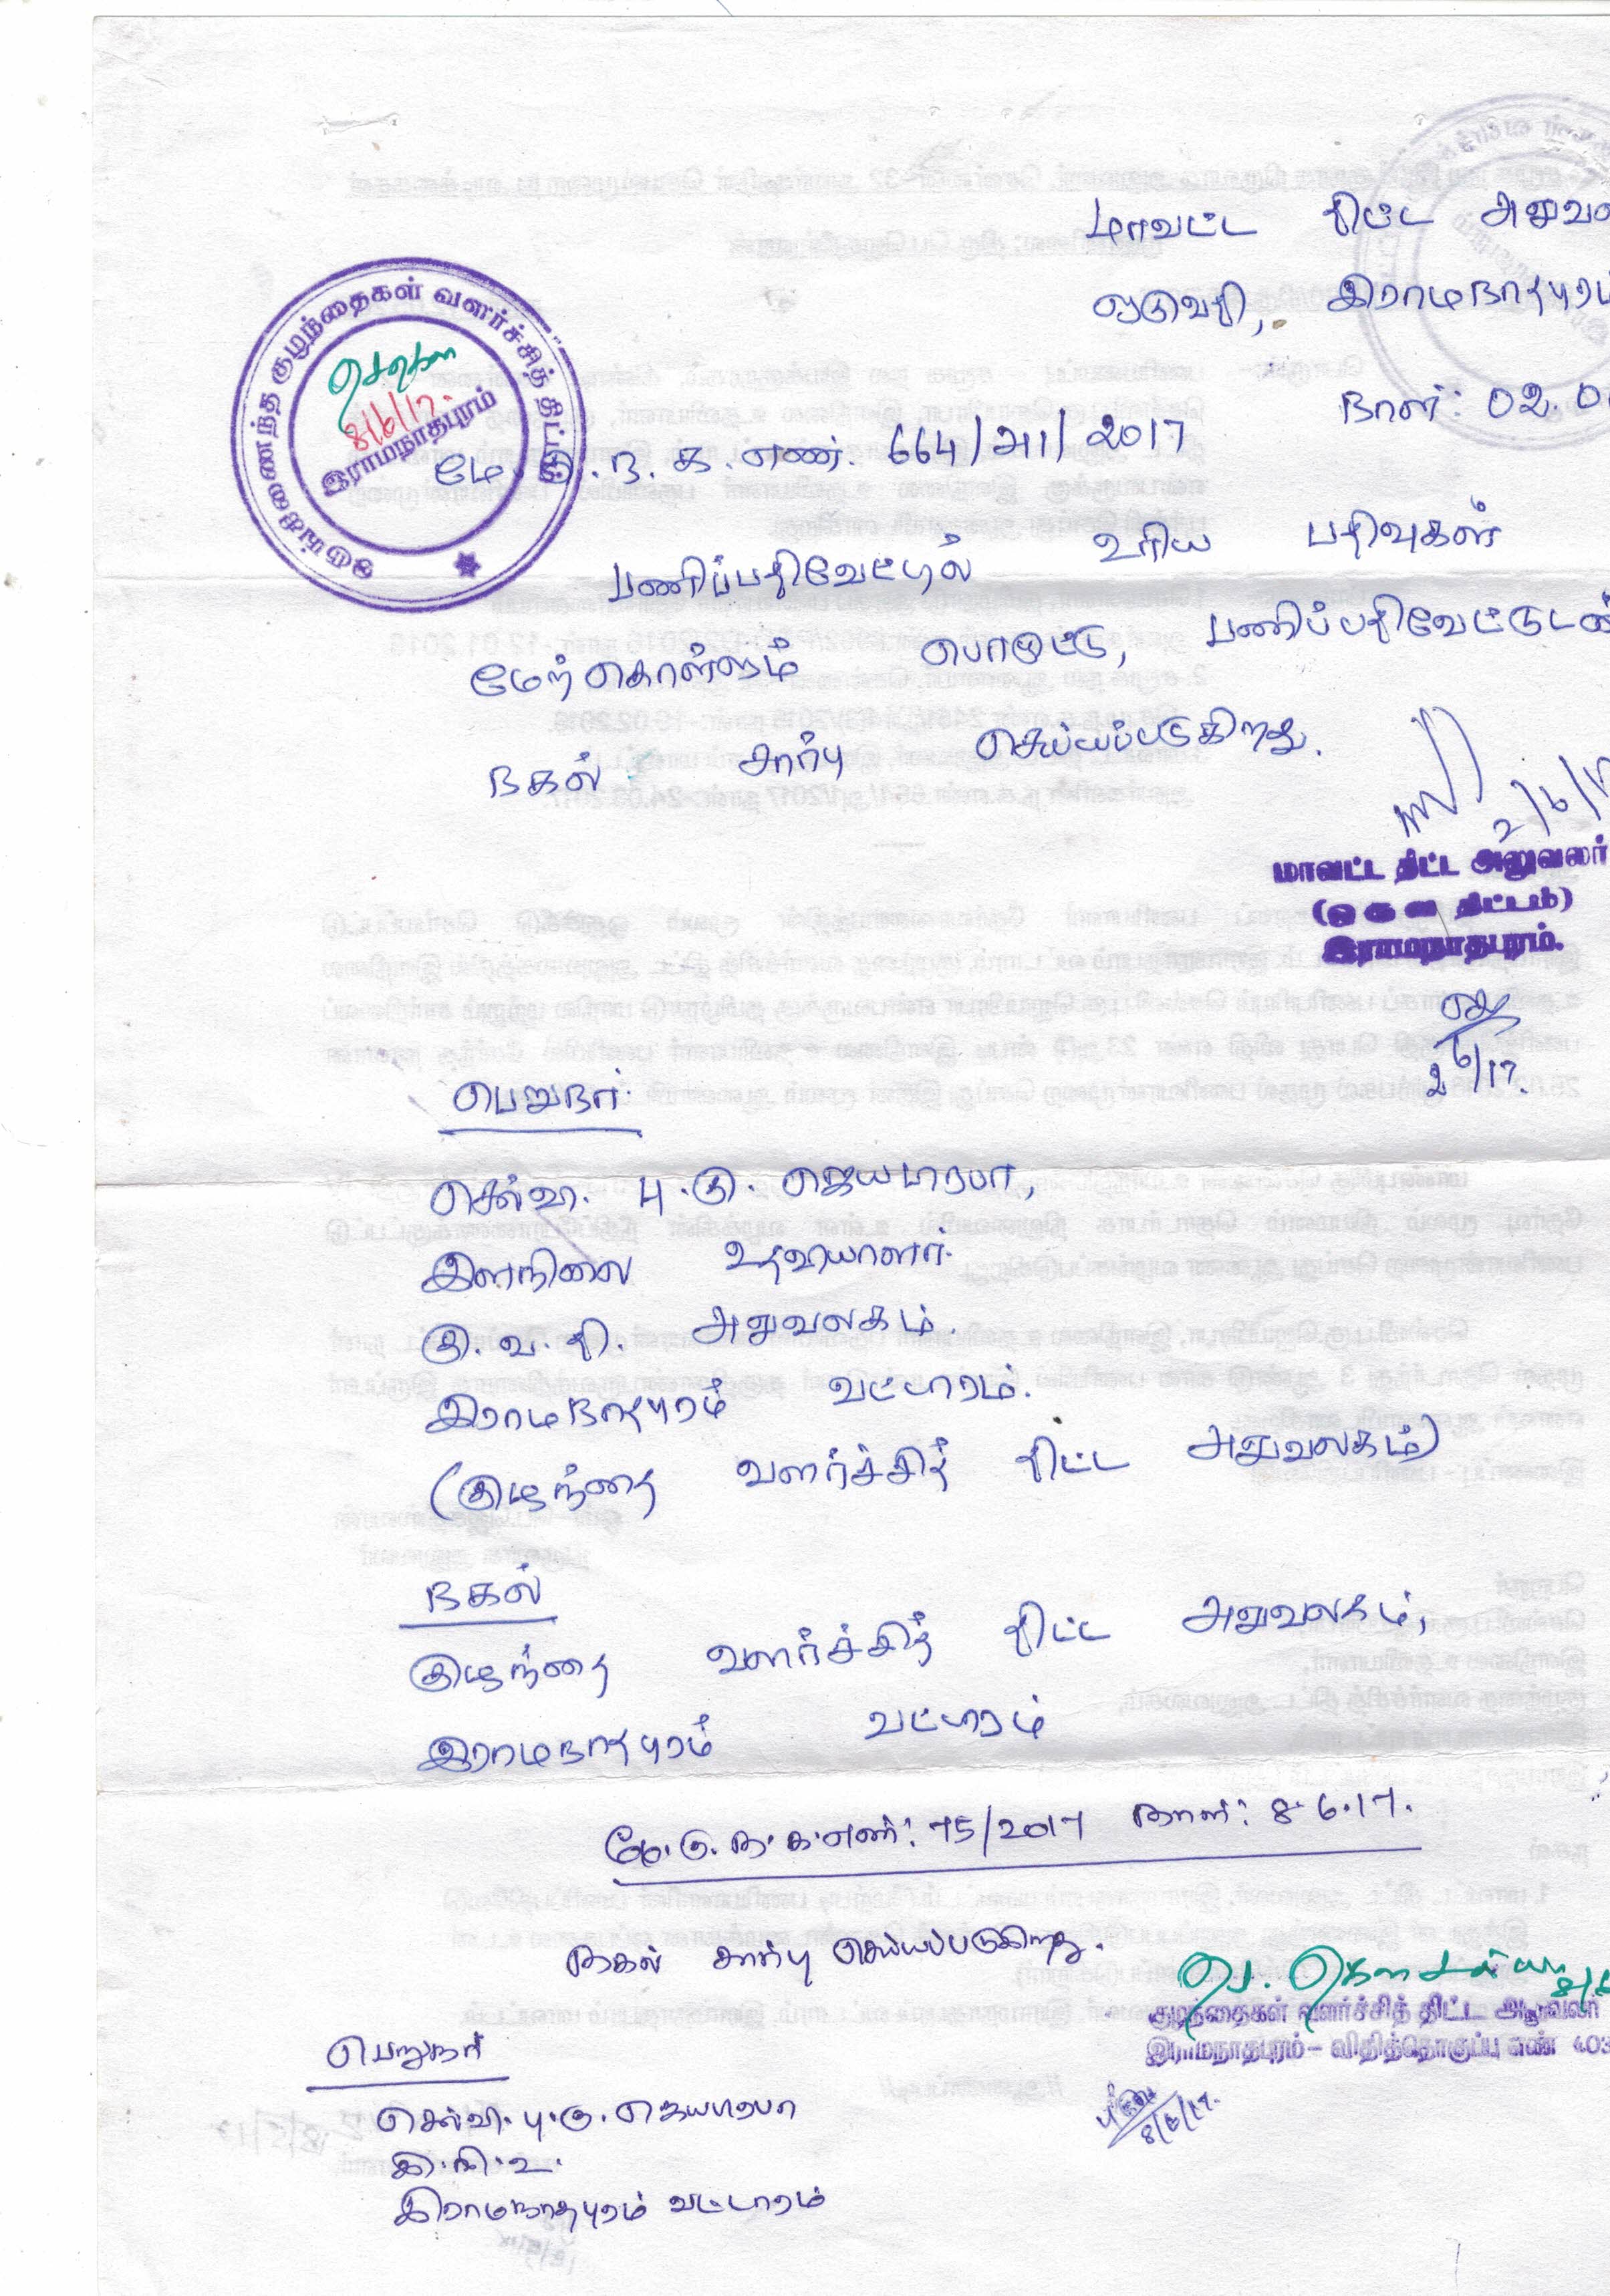 மாவட்ட திட்ட அலுவல
ஒகுவதி, இராமநாதபுரம்
நாள்: 02.0
ஒருங்கிணைந்த குழந்தைகள் வளர்ச்சித் திட்டம்
8/6/17.
இராமநாதபுரம்
மே.கு.ந.க.எண். 664/அ1/2017
பணிப்பதிவேட்டில் உரிய பதிவுகள்
மேற்கொள்ளும் பொருட்டு, பணிப்பதிவேட்டுடன்
நகல் சார்பு செய்யப்படுகிறது.
2/6/17
மாவட்ட திட்ட அலுவலர்
(ஒ கு வ திட்டம்)
இராமநாதபுரம்.
2/6/17.
பெறுநர்
செல்வி. பு.கு. ஜெயபிரபா,
இளநிலை உதவியாளர்.
கு.வ.தி. அலுவலகம்.
இராமநாதபுரம் வட்டாரம்.
(குழந்தை வளர்ச்சித் திட்ட அலுவலகம்)
நகல்
குழந்தை வளர்ச்சித் திட்ட அலுவலகம்,
இராமநாதபுரம் வட்டாரம்
மே.கு.ந.க.எண்: 75/2017 நாள்: 8.6.17.
நகல் சார்பு செய்யப்படுகிறது.
குழந்தைகள் வளர்ச்சித் திட்ட அலுவலர்
இராமநாதபுரம் – விதித்தொகுப்பு எண் 403
8/6/17.
பெறுநர்
செல்வி. பு.கு. ஜெயபிரபா
இ.நி.உ.
இராமநாதபுரம் வட்டாரம்